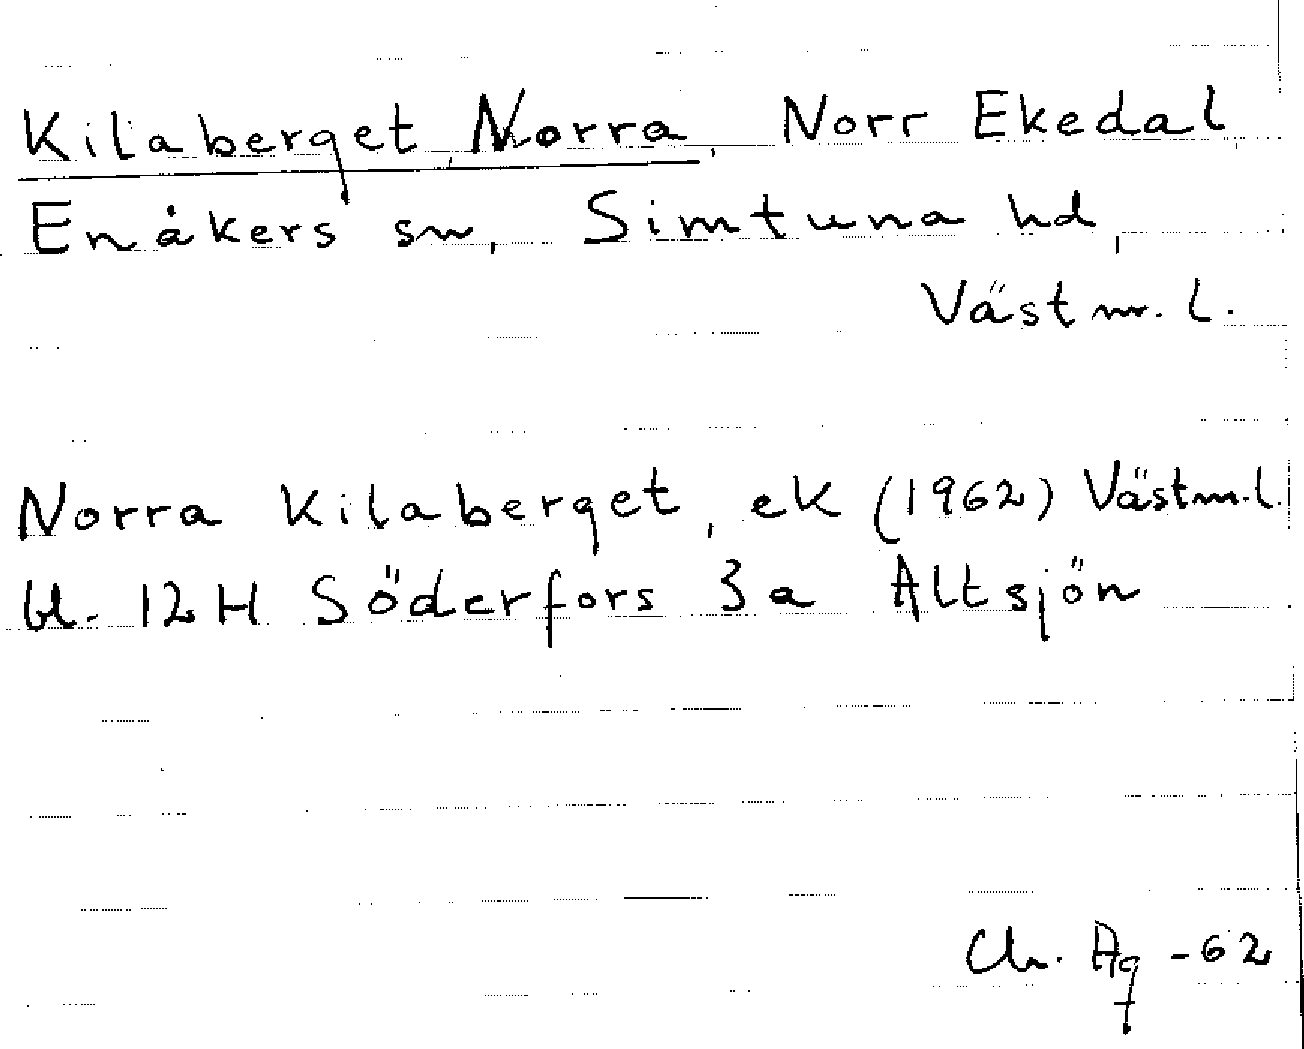 Kilaberget, Norra, Norr Ekedal,
Enåkers sn, Simtuna hd,
Västm. l.
Norra Kilaberget, ek (1962) Västm.l.
bl. 12 H Söderfors 3 a Altsjön
Ch. Ag -62